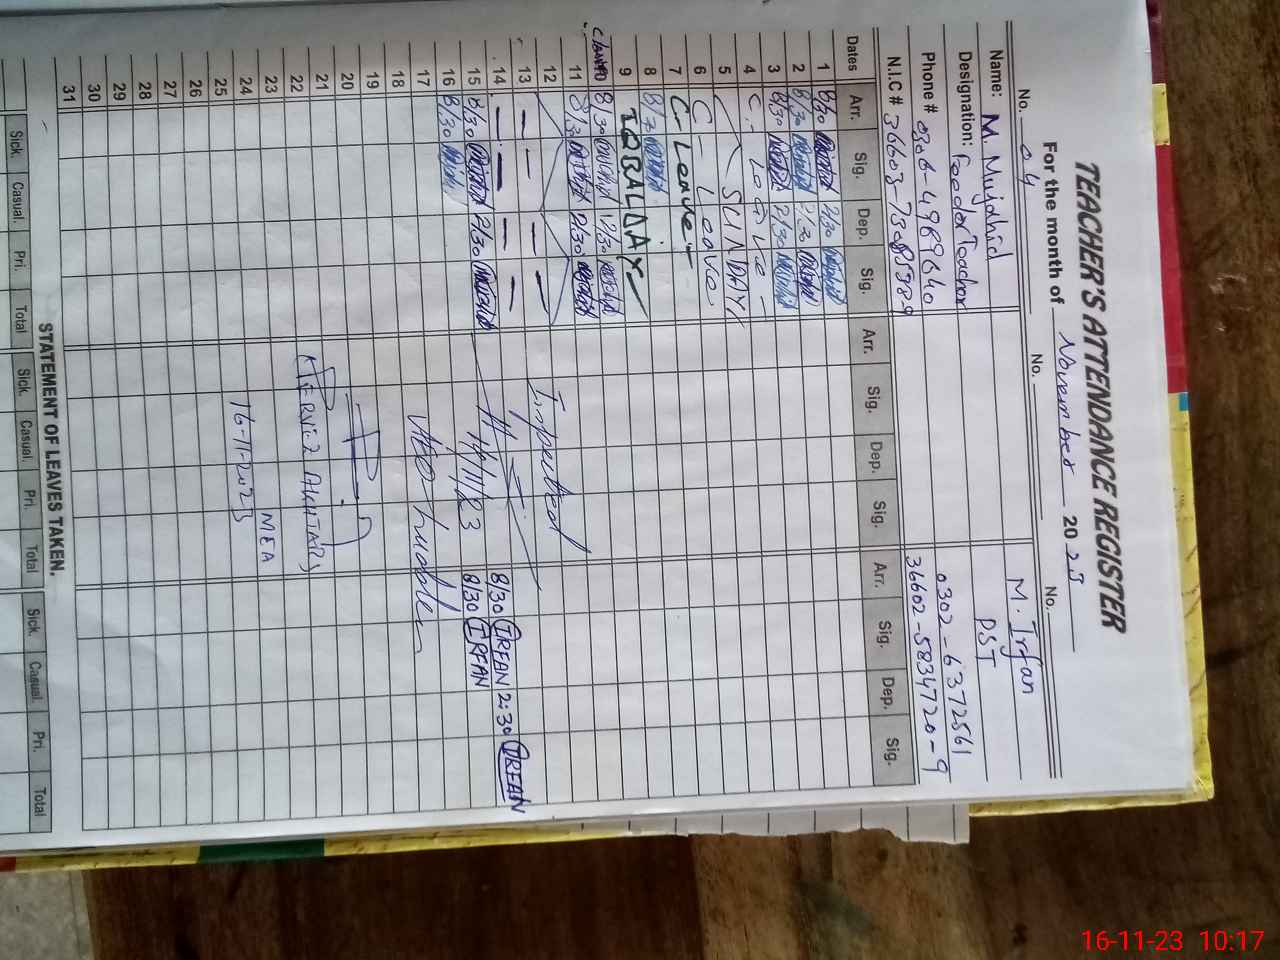 TEACHER'S ATTENDANCE REGISTER
For the month of November 2023
No. 04 No. No.
Name: M. Mujahid M. Irfan
Designation: Feeder Teacher PST
Phone # 0306-4989640 0302-6372561
N.I.C # 36602-5834720-9
Dates Arr. Sig. Dep. Sig. Arr. Sig. Dep. Sig. Arr. Sig. Dep. Sig.
1 8/30 Mujahid 2/30 Mujahid
2 8/30 Mujahid 2/30 Mujahid
3 8/30 Mujahid 2/30 Mujahid
4 C - Leave -
5 SUNDAY
6 C - Leave
7 C - Leave -
8 8/30 Mujahid
9 IQBAL DAY
10 8/30 Mujahid 12/30 Mujahid
11 8/30 Mujahid 2/30 Mujahid
12
13 — — — — Inspected
14 — — — — 8/30 IRFAN 2:30 IRFAN
15 8/30 Mujahid 2/30 Mujahid 14/11/23 8/30 IRFAN
16 8/30 Mujahid
17
18
19
20
21
22 PERVIZ AKHTAR
23 MEA
24 16-11-2023
25
26
27
28
29
30
31
STATEMENT OF LEAVES TAKEN.
Sick. Casual. Pri. Total Sick. Casual. Pri. Total Sick. Casual. Pri. Total
16-11-23 10:17